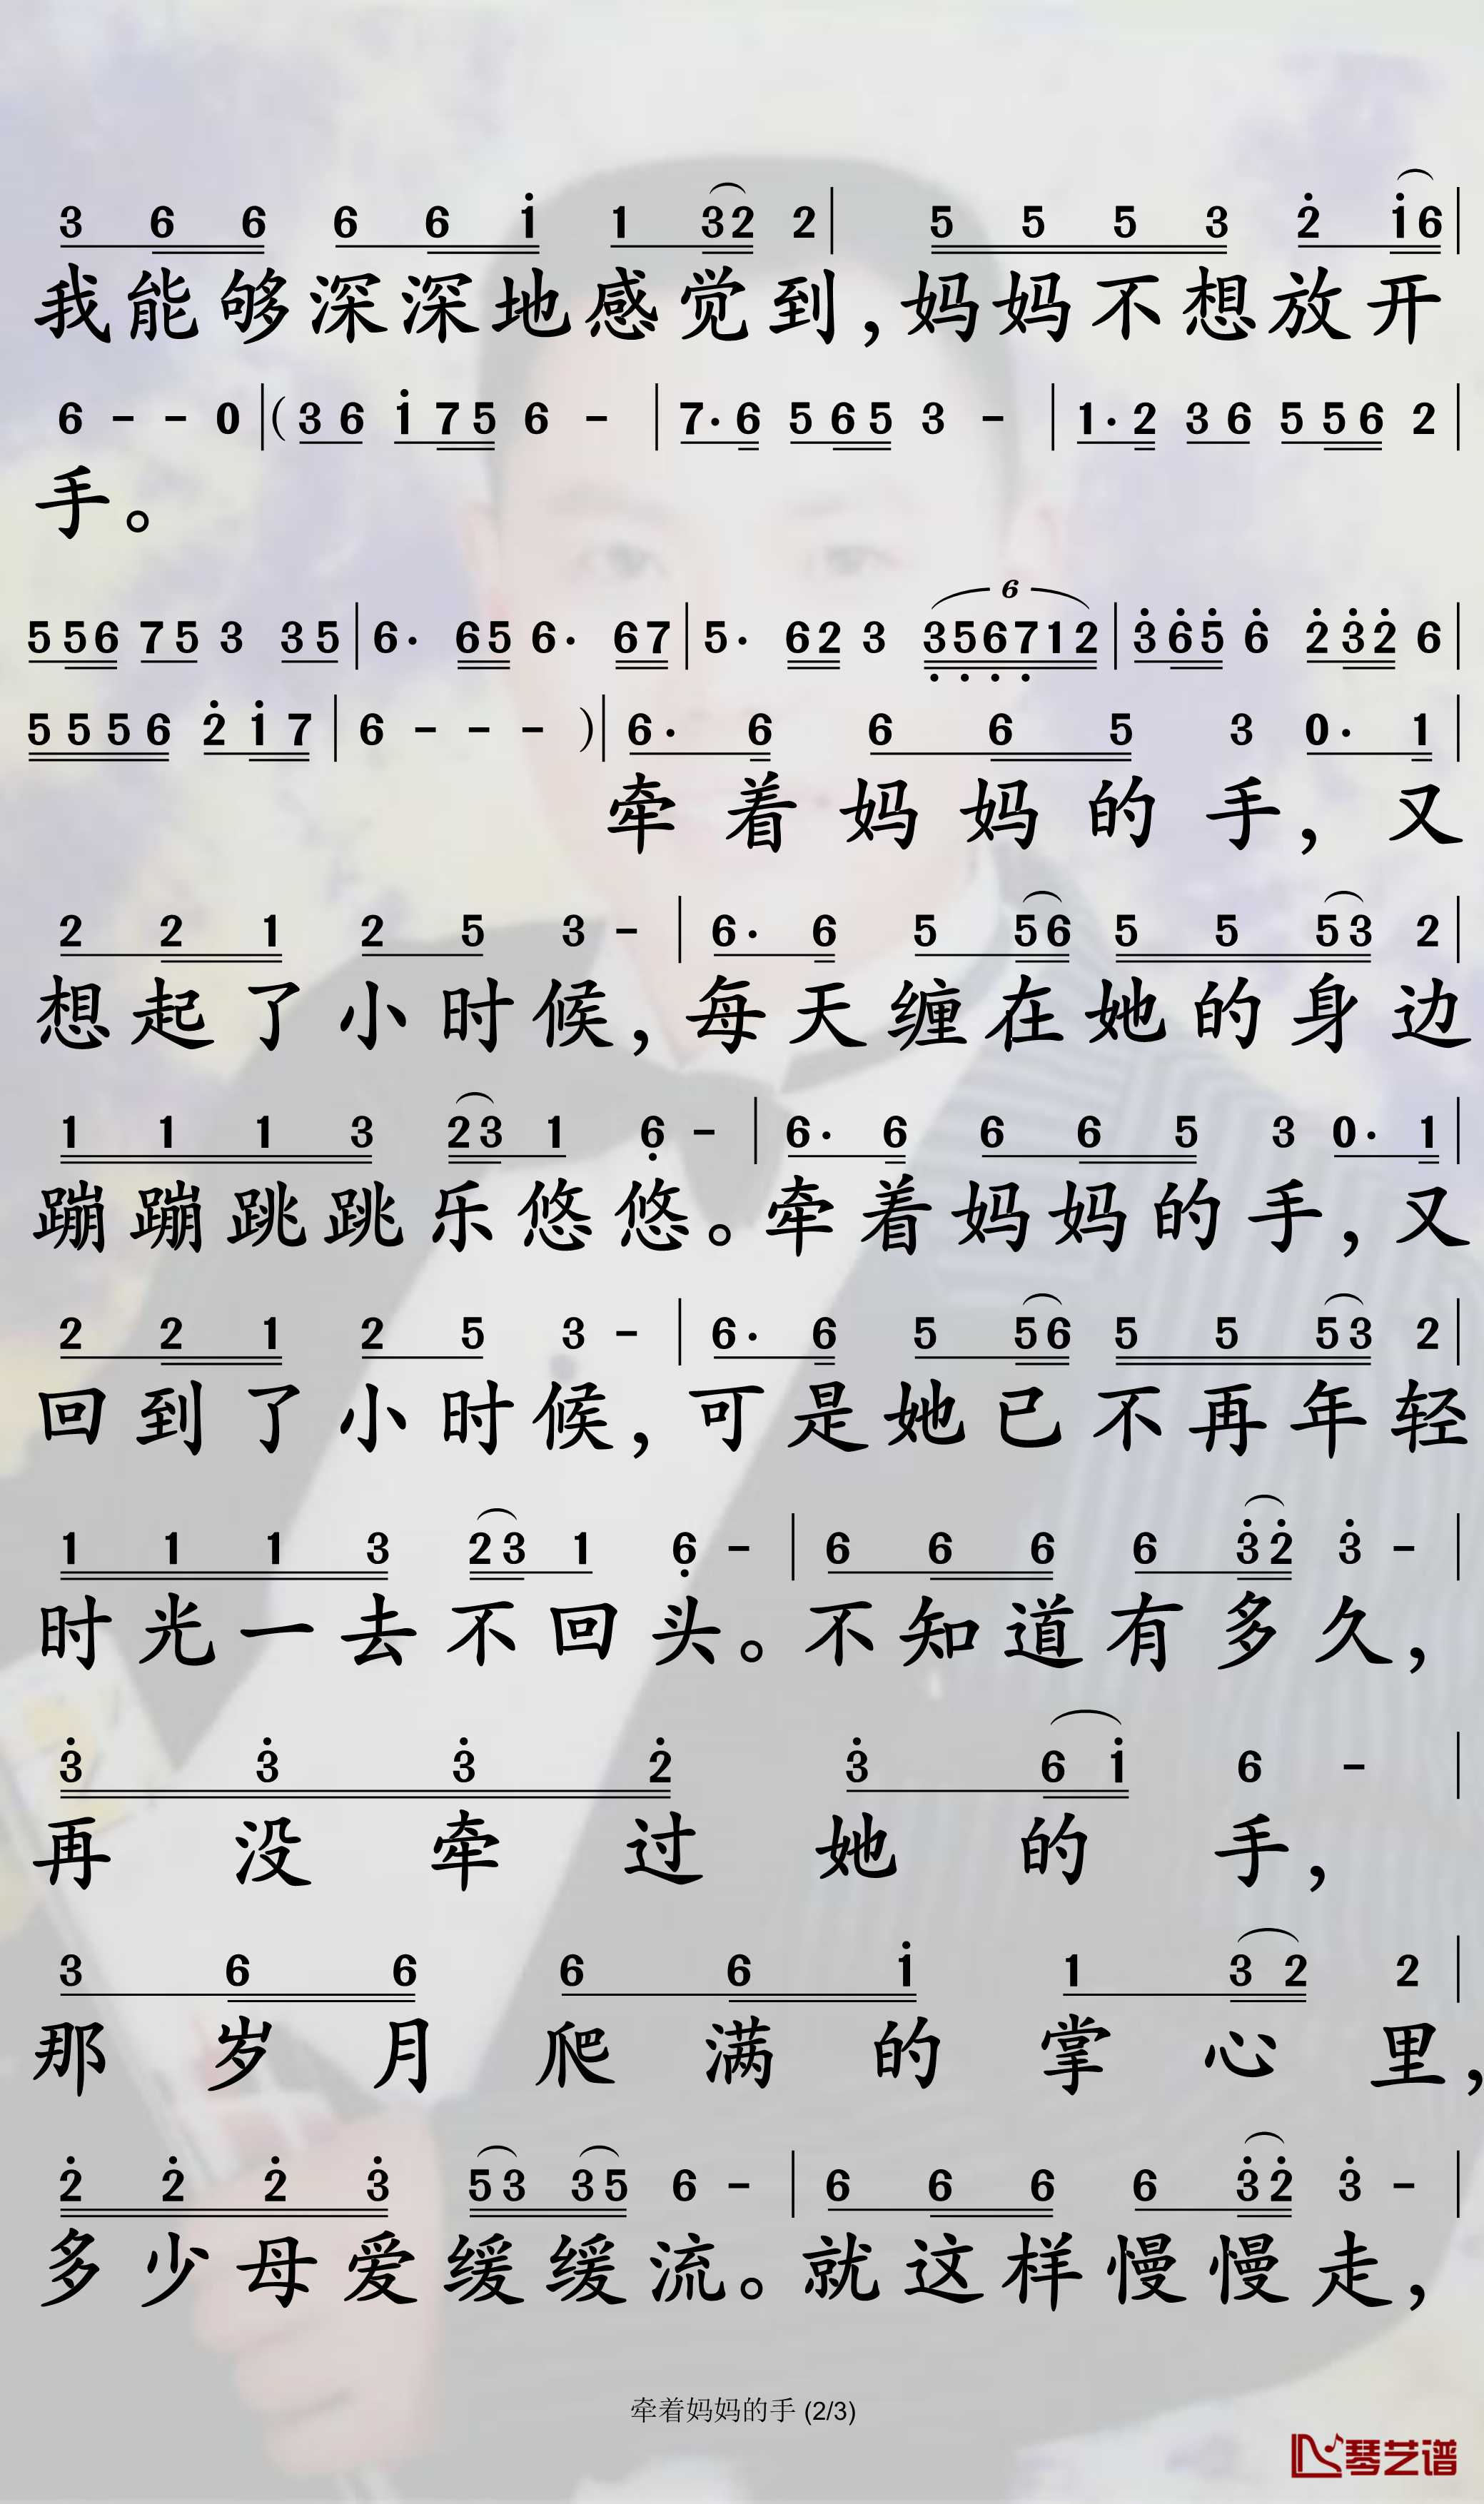 3 6 6 6 6 1 1 3 2 2 | 5 5 5 3 2 1 6 |
我能够深深地感觉到,妈妈不想放开
6 - - 0 | ( 3 6 1 7 5 6 - | 7· 6 5 6 5 3 - | 1· 2 3 6 5 5 6 2 |
手。
6
5 5 6 7 5 3 3 5 | 6· 6 5 6· 6 7 | 5· 6 2 3 3 5 6 7 1 2 | 3 6 5 6 2 3 2 6 |
5 5 5 6 2 1 7 | 6 - - - ) | 6· 6 6 6 5 3 0· 1 |
牵着妈妈的手,又
2 2 1 2 5 3 - | 6· 6 5 5 6 5 5 5 3 2 |
想起了小时候,每天缠在她的身边
1 1 1 3 2 3 1 6 - | 6· 6 6 6 5 3 0· 1 |
蹦蹦跳跳乐悠悠。牵着妈妈的手,又
2 2 1 2 5 3 - | 6· 6 5 5 6 5 5 5 3 2 |
回到了小时候,可是她已不再年轻
1 1 1 3 2 3 1 6 - | 6 6 6 6 3 2 3 - |
时光一去不回头。不知道有多久,
3 3 3 2 3 6 1 6 - |
再没牵过她的手,
3 6 6 6 6 1 1 3 2 2 |
那岁月爬满的掌心里,
2 2 2 3 5 3 3 5 6 - | 6 6 6 6 3 2 3 - |
多少母爱缓缓流。就这样慢慢走,
牵着妈妈的手 (2/3)
琴艺谱